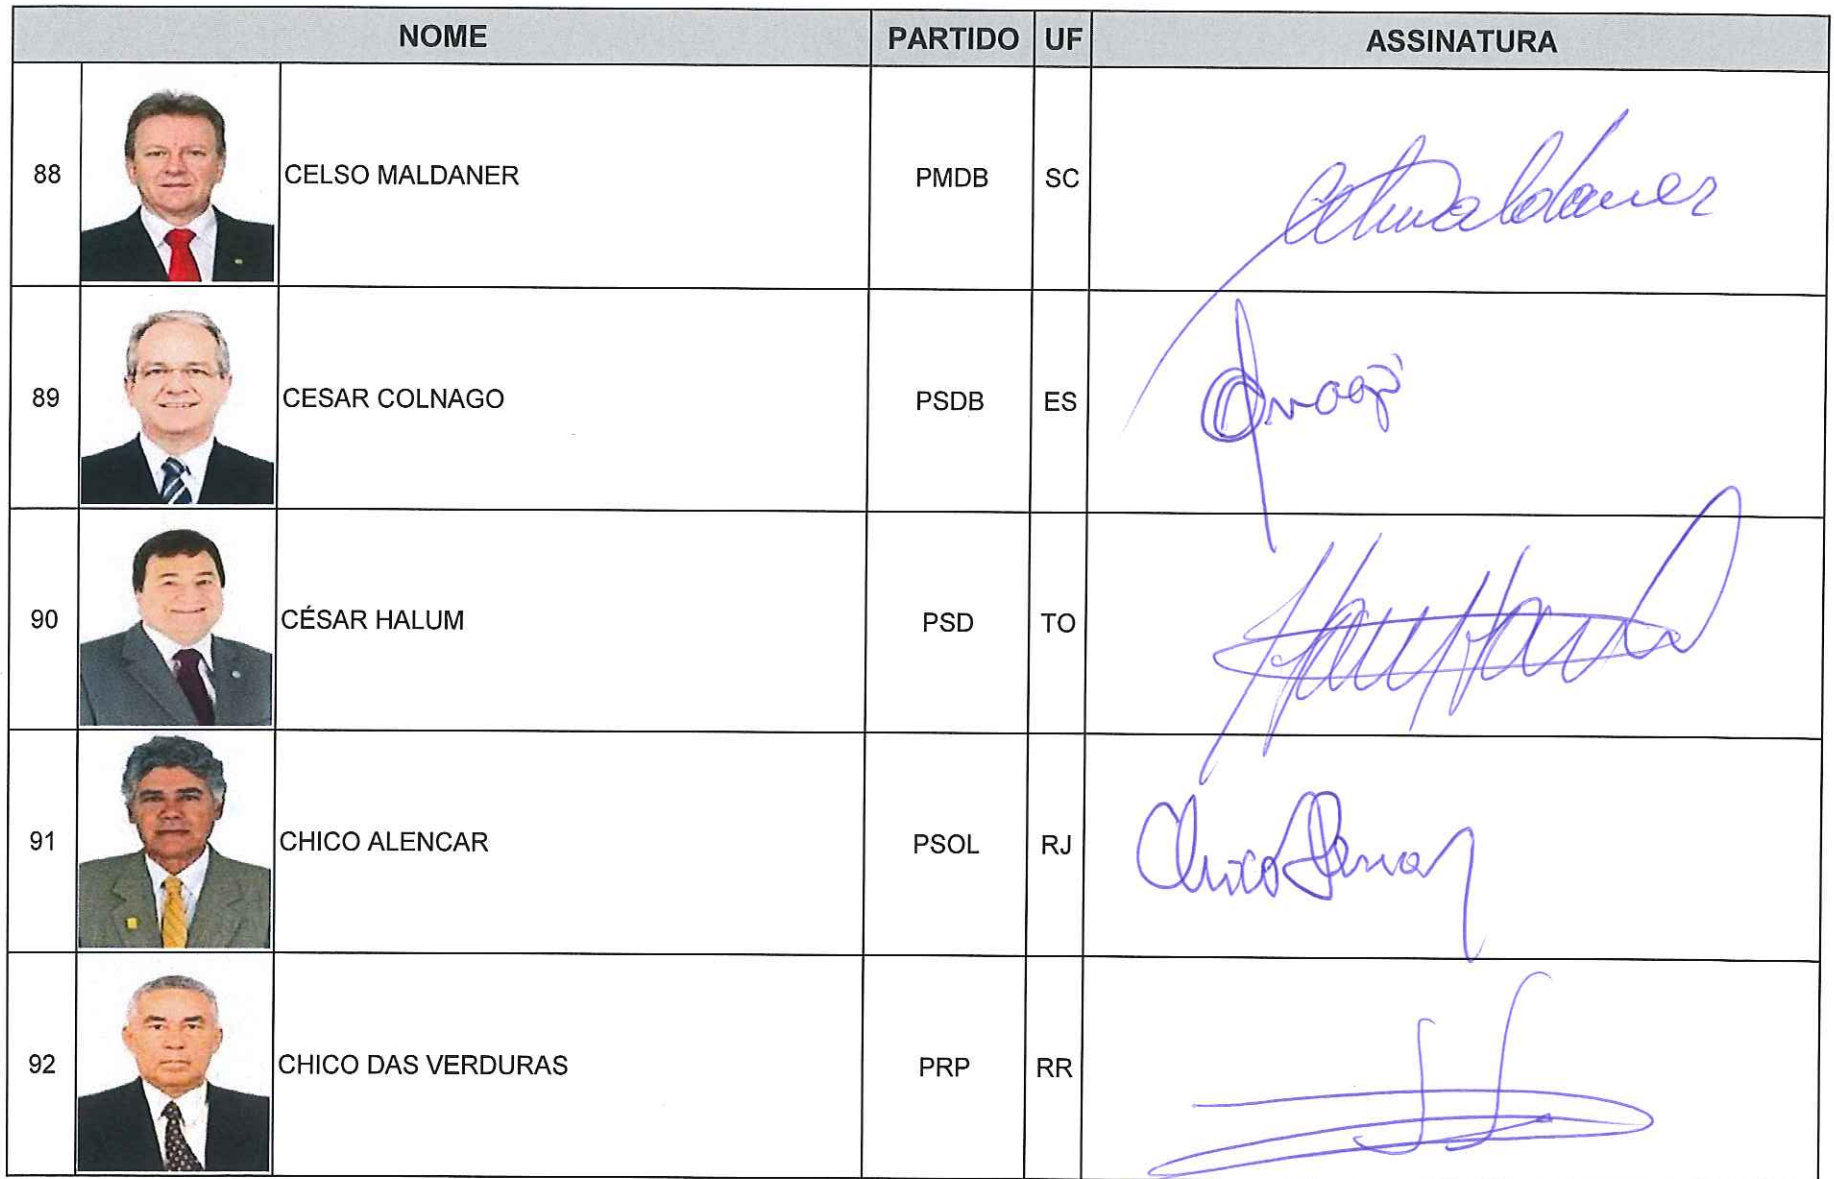 NOME PARTIDO UF ASSINATURA
88 CELSO MALDANER PMDB SC
89 CESAR COLNAGO PSDB ES
90 CÉSAR HALUM PSD TO
91 CHICO ALENCAR PSOL RJ Chico
92 CHICO DAS VERDURAS PRP RR